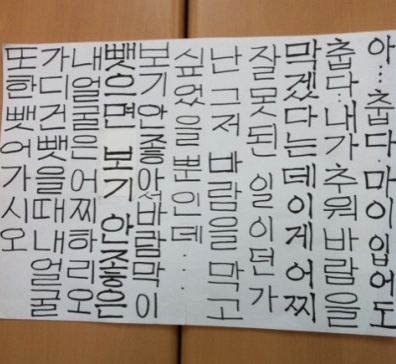 아…춥다.마이입어도
춥다…내가추워바람을
막겠다는데이게어찌
잘못된 일이던가
난그저 바람을막고
싶었을뿐인데…
보기안좋아서바람막이
뺏으면 보기 안좋은
내얼굴은어찌하리오
가디건뺏을때내얼굴
또한뺏어가시오